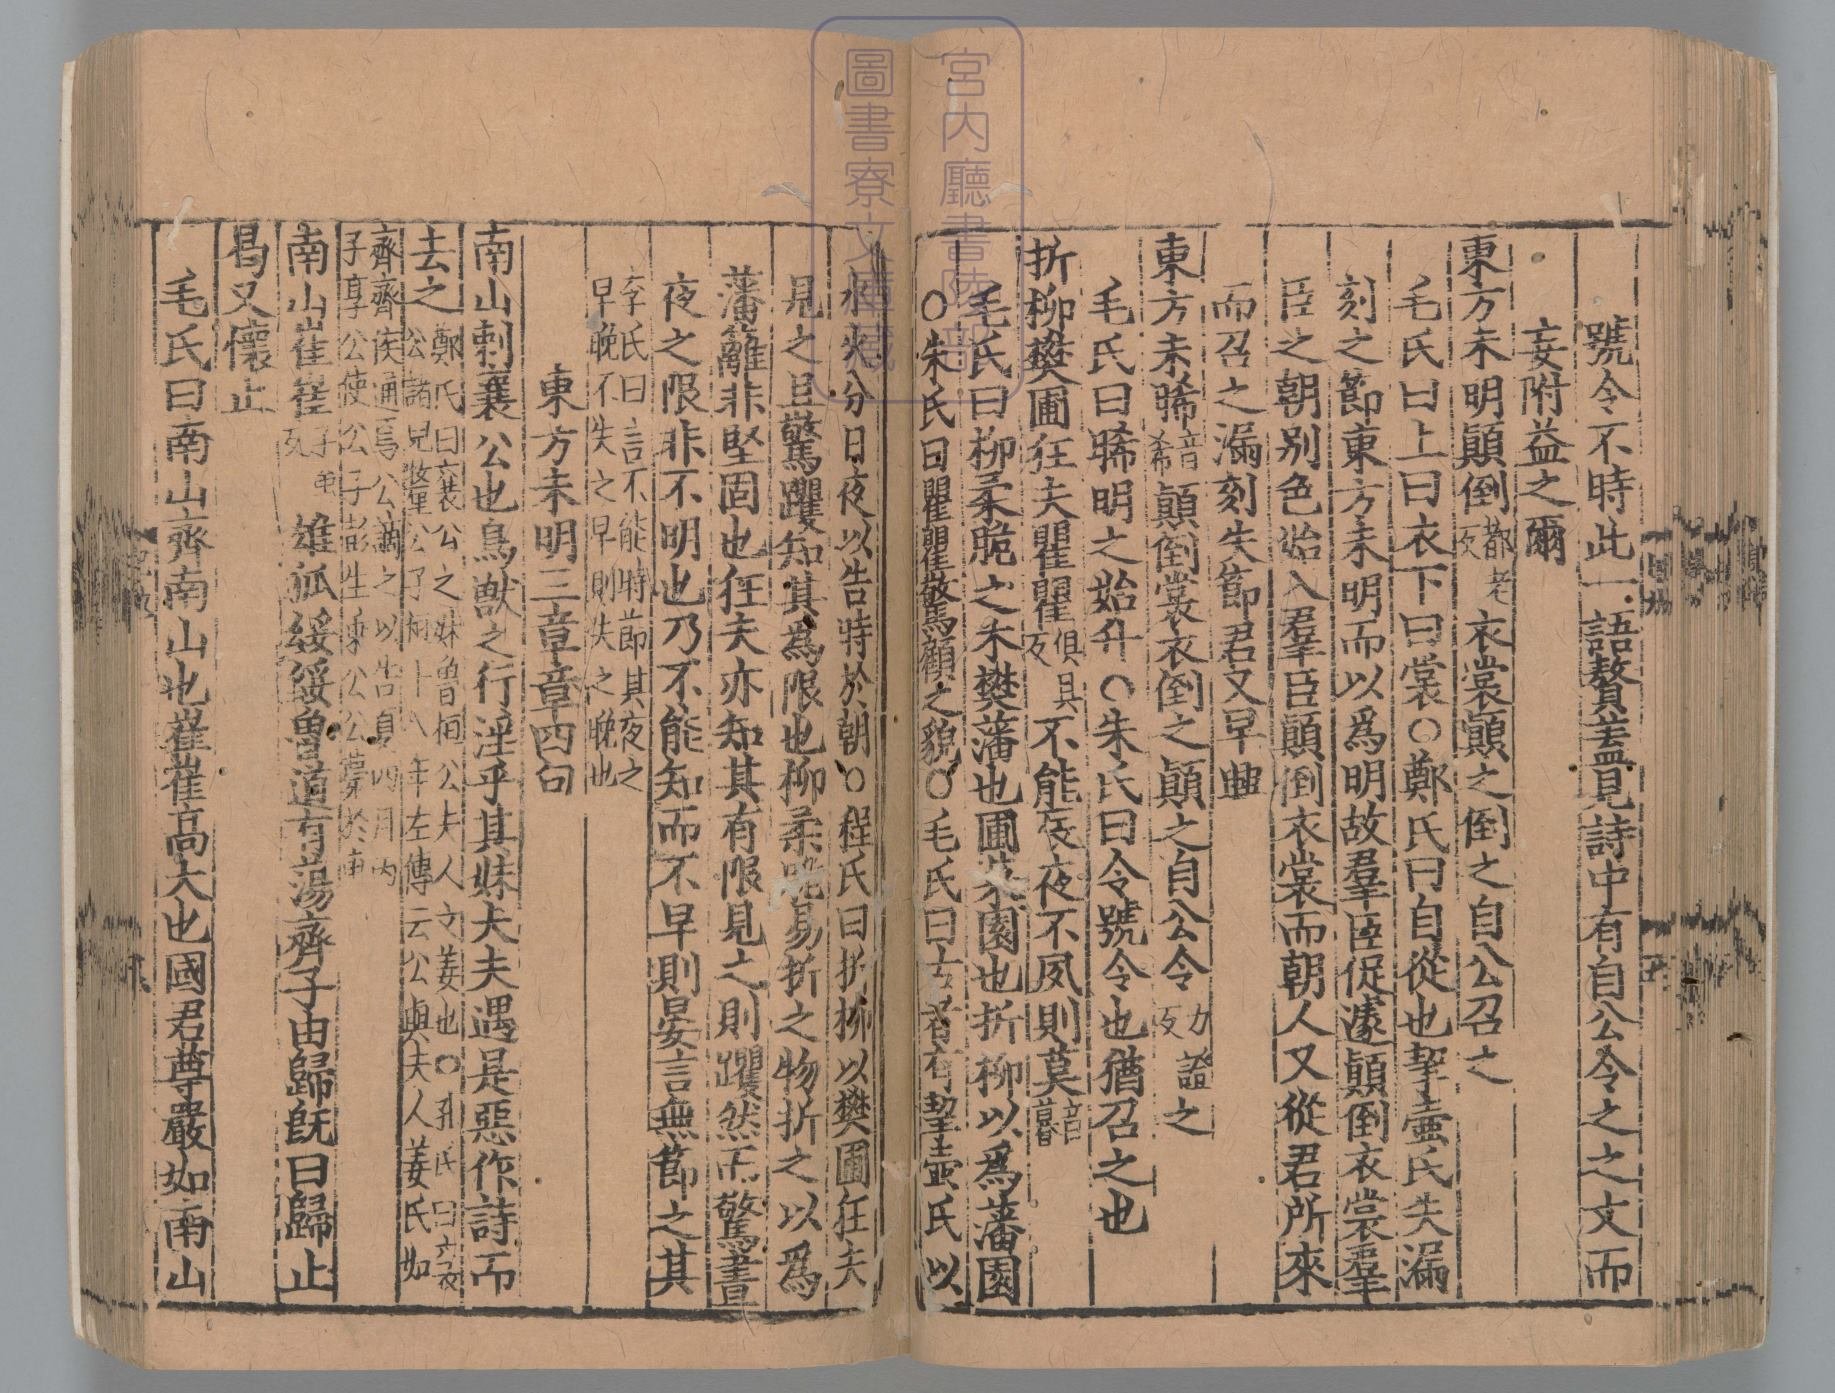 號令不時此一語贅蓋見詩中有自公令之之文而
妄附益之爾
東方未明顛倒都老反衣裳顛之倒之自公召之
毛氏曰上曰衣下曰裳○鄭氏曰自從也挈壷氏失漏
刻之節東方未明而以爲明故羣臣促遽顛倒衣裳羣
臣之朝别色始入羣臣顛倒衣裳而朝人又從君所來
而召之漏刻失節君又早興
東方未晞音希顛倒裳衣倒之顛之自公令力證反之
毛氏曰晞明之始升○朱氏曰令號令也猶召之也
折柳樊圃狂夫瞿瞿俱具反不能辰夜不夙則莫音暮
毛氏曰柳柔脆之木樊藩也圃菜園也折柳以爲藩園
○朱氏曰瞿瞿驚顧之貌○毛氏曰古者有挈壷氏以
水火分日夜以告時於朝○程氏曰折柳以樊圃狂夫
見之且驚躩知其爲限也柳柔脆易折之物折之以爲
藩籬非堅固也狂夫亦知其有限見之則躩然而驚晝
夜之限非不明也乃不能知而不早則晏言無節之其
李氏曰言不能時節其夜之
早晚不失之早則失之晚也
東方未明三章章四句
南山刺襄公也鳥獸之行淫乎其妹夫夫遇是惡作詩而
去之鄭氏曰襄公之妹魯桓公夫人文姜也○孔氏曰
公諸兒釐公子桓十八年左傳云公與夫人姜氏如
齊齊侯通焉公謫之以告夏四月丙
子享公使公子彭生乘公公薨於車
南山崔崔子反雄狐綏綏魯道有蕩齊子由歸旣曰歸止
曷又懷止
毛氏曰南山齊南山也崔崔高大也國君尊嚴如南山
宮内廳書陵部
圖書寮文庫藏